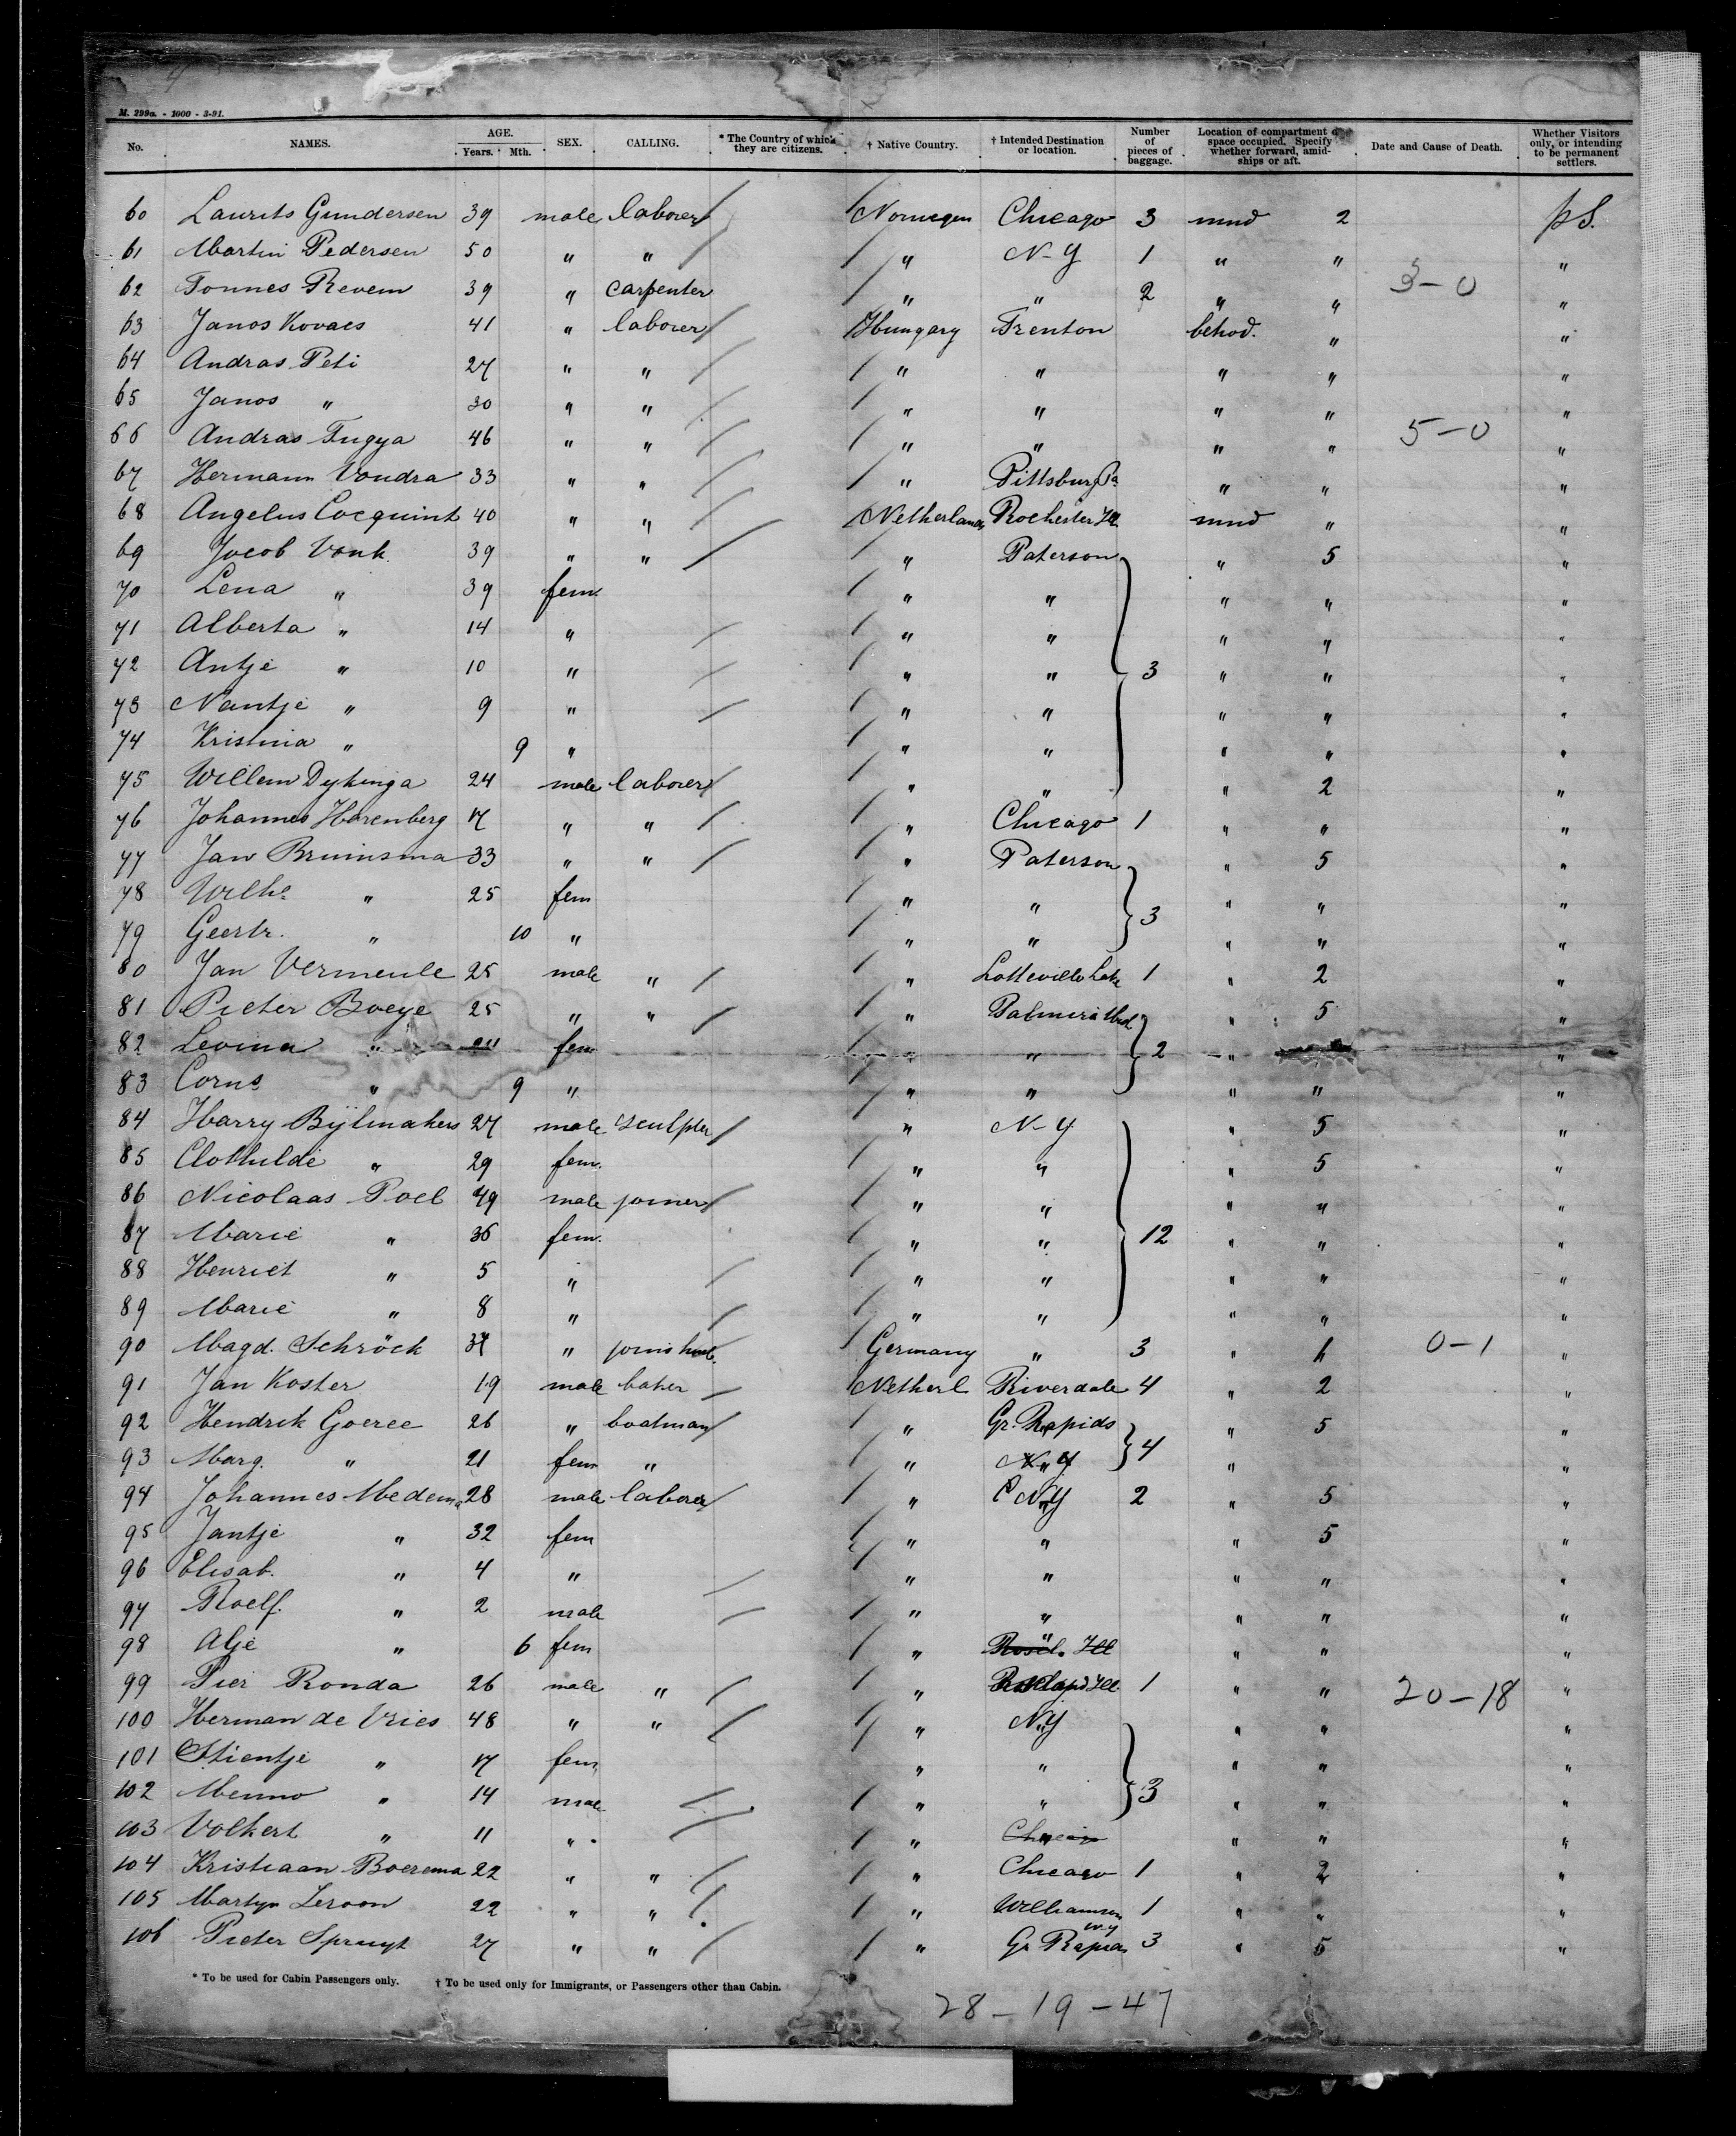 M. 299a. - 1000 - 3-91.
No. NAMES. AGE. Years. Mth. SEX. CALLING. * The Country of which they are citizens. † Native Country. † Intended Destination or location. Number of pieces of baggage. Location of compartment or space occupied. Specify whether forward, amidships or aft. Date and Cause of Death. Whether Visitors only, or intending to be permanent settlers.
60 Laurits Gundersen 39 male laborer Norwegen Chicago 3 mnd 2 p S.
61 Martin Pedersen 50 " " " N-Y 1 " " "
62 Tonnes Revem 39 " carpenter " " 2 " " 3-0 "
63 Janos Kovacs 41 " laborer Hungary Trenton behod. " "
64 Andras Peti 27 " " " " " " "
65 Janos " 30 " " " " " " "
66 Andras Fugya 46 " " " " " " 5-0 "
67 Hermann Vondra 33 " " " Pittsburg Pa " " "
68 Angelus Cocquint 40 " " Netherlands Rochester mnd " "
69 Jacob Vonk 39 " " " Paterson " 5 "
70 Lena " 39 fem. " " " " "
71 Alberta " 14 " " " " " "
72 Antje " 10 " " " 3 " " "
73 Nantje " 9 " " " " " "
74 Kristina " 9 " " " " " "
75 Willem Dykinga 24 male laborer " " " 2 "
76 Johannes Harenberg 17 " " " Chicago 1 " " "
77 Jan Bruinsma 33 " " " Paterson " 5 "
78 Wilhe " 25 fem " " " " "
79 Geertr. " 10 " " " 3 " " "
80 Jan Vermeule 25 male " " Lotteville 1 " 2 "
81 Pieter Boeye 25 " " " " 5 "
82 Levina " fem " " 2 " "
83 Corns " 9 " " " " " "
84 Harry Bijlmakers 27 male sculpter " N-Y " 5 "
85 Clothilde " 29 fem. " " " 5 "
86 Nicolaas Poel 49 male joiner " " " " "
87 Marie " 36 fem. " " 12 " " "
88 Henriet " 5 " " " " " "
89 Marie " 8 " " " " " "
90 Magd. Schröck " Germany " 3 " 0-1 "
91 Jan Koster 19 male baker Netherl Riverdale 4 " 2 "
92 Hendrik Goeree 26 " boatman " Gr. Rapids " 5 "
93 Marg. " 21 fem " " 4 " "
94 Johannes Medema 28 male laborer " N.Y 2 " 5 "
95 Jantje " 32 fem " " " 5 "
96 Elisab. " 4 " " " " " "
97 Roelf. " 2 male " " " " "
98 Alje " 6 fem " " Ill " " "
99 Pier Ronda 26 male " " Ill 1 " " 20-18 "
100 Herman de Vries 48 " " " N.Y " " "
101 Stientje " 17 fem " " " " "
102 Menno " 14 male " " 3 " " "
103 Volkert " 11 " " " " "
104 Kristiaan Boerema 22 " " " Chicago 1 " 2 "
105 Martyn Leroon 22 " " " Williamson N.Y 1 " " "
106 Pieter Spruyt 27 " " " Gr Rapids 3 " 5 "
* To be used for Cabin Passengers only. † To be used only for Immigrants, or Passengers other than Cabin.
28-19-47